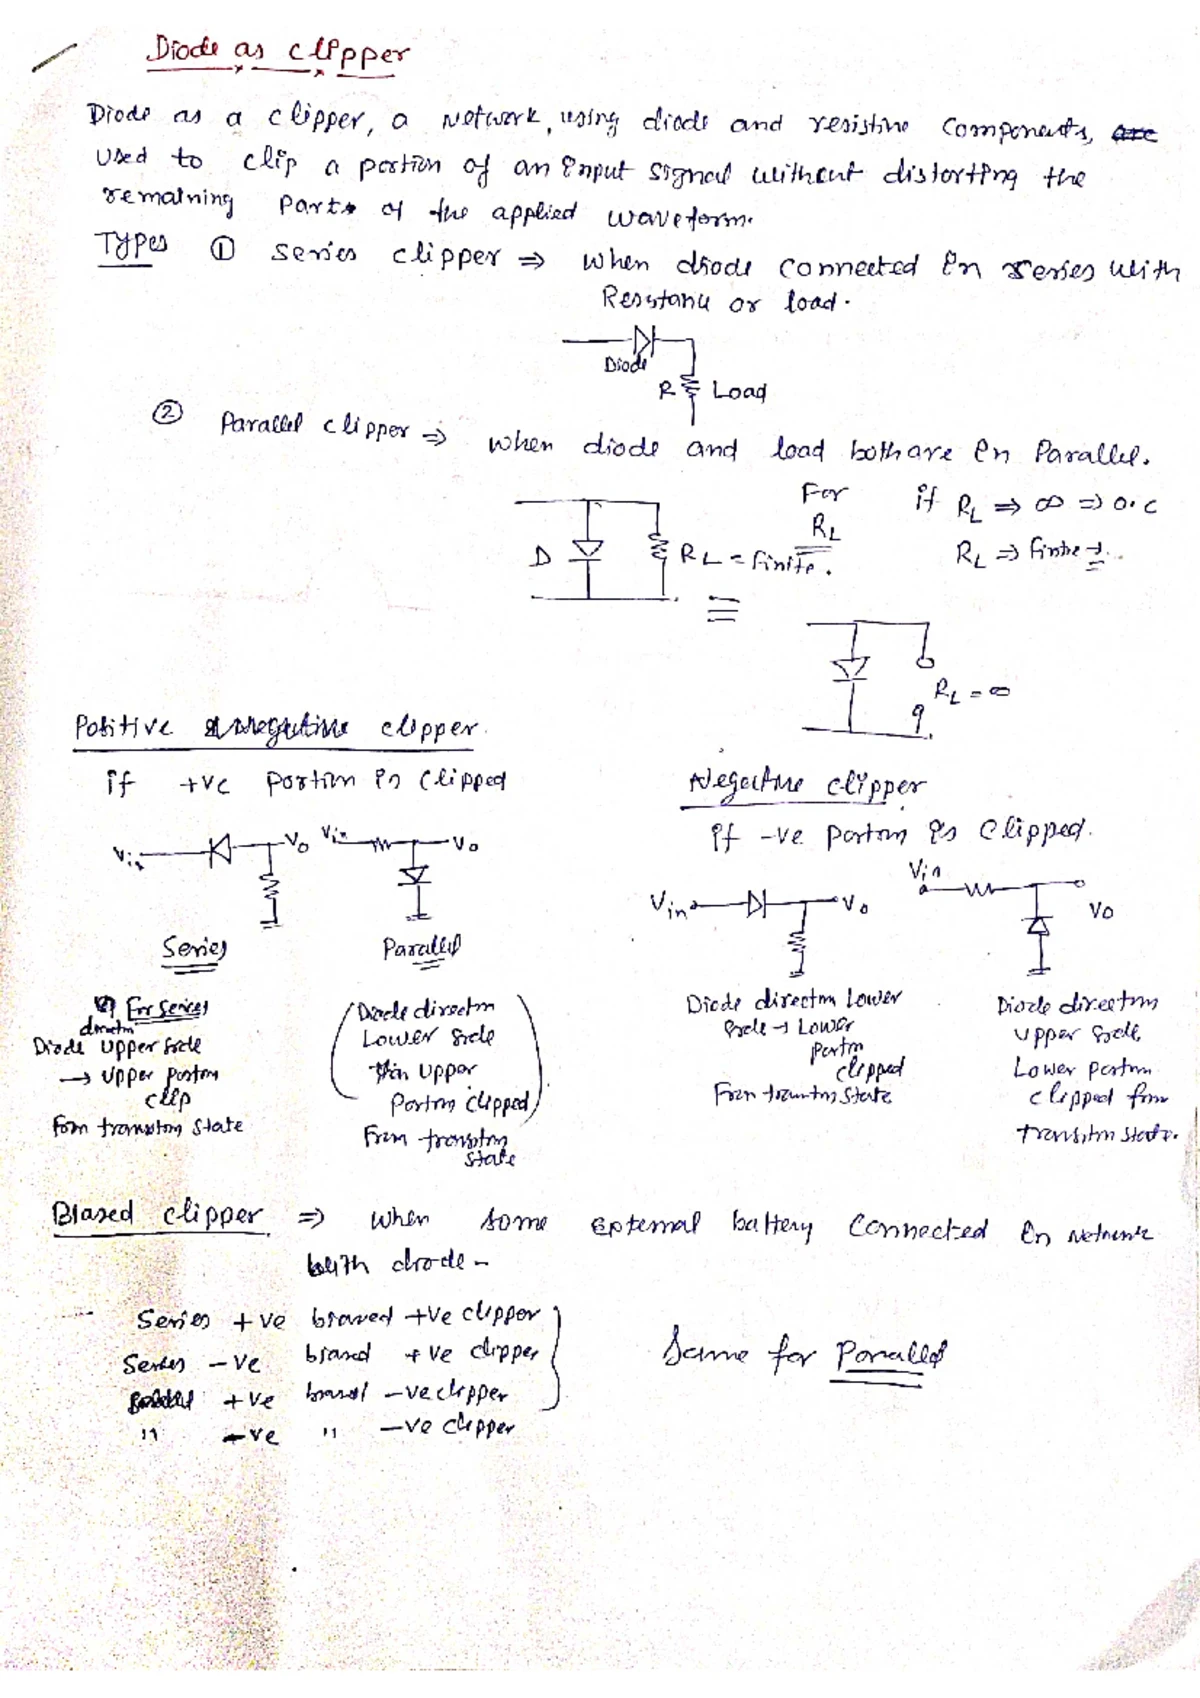 Diode as clipper
Diode as a clipper, a Network, using diode and resistive components, are
used to clip a portion of an input signal without distorting the
remaining parts of the applied waveform.
Types ① Series clipper ⇒ When diode connected in series with
Resistance or load.
Diode
R Load
② Parallel clipper ⇒ When diode and load both are in Parallel.
For R_L
if R_L ⇒ ∞ ⇒ o.c
R_L ⇒ finite
D R_L = finite.
≡
R_L = ∞
Positive clipper.
if +ve portion is clipped
Negative clipper
if -ve portion is clipped.
Vin Vo Vin Vo
Vin Vo Vin Vo
Series Parallel
For series
direction
Diode upper side
→ upper portion
clip
From transition state
Diode direction
Lower side
then upper
Portion clipped
From transition
state
Diode direction Lower
side → Lower
portion
clipped
From transition state
Diode direction
upper side,
Lower portion
clipped from
transition state.
Biased clipper ⇒ When some external battery connected in network
with diode -
Series +ve biased +ve clipper
Series -ve biased +ve clipper
+ve biased -ve clipper
" -ve " -ve clipper
Same for Parallel